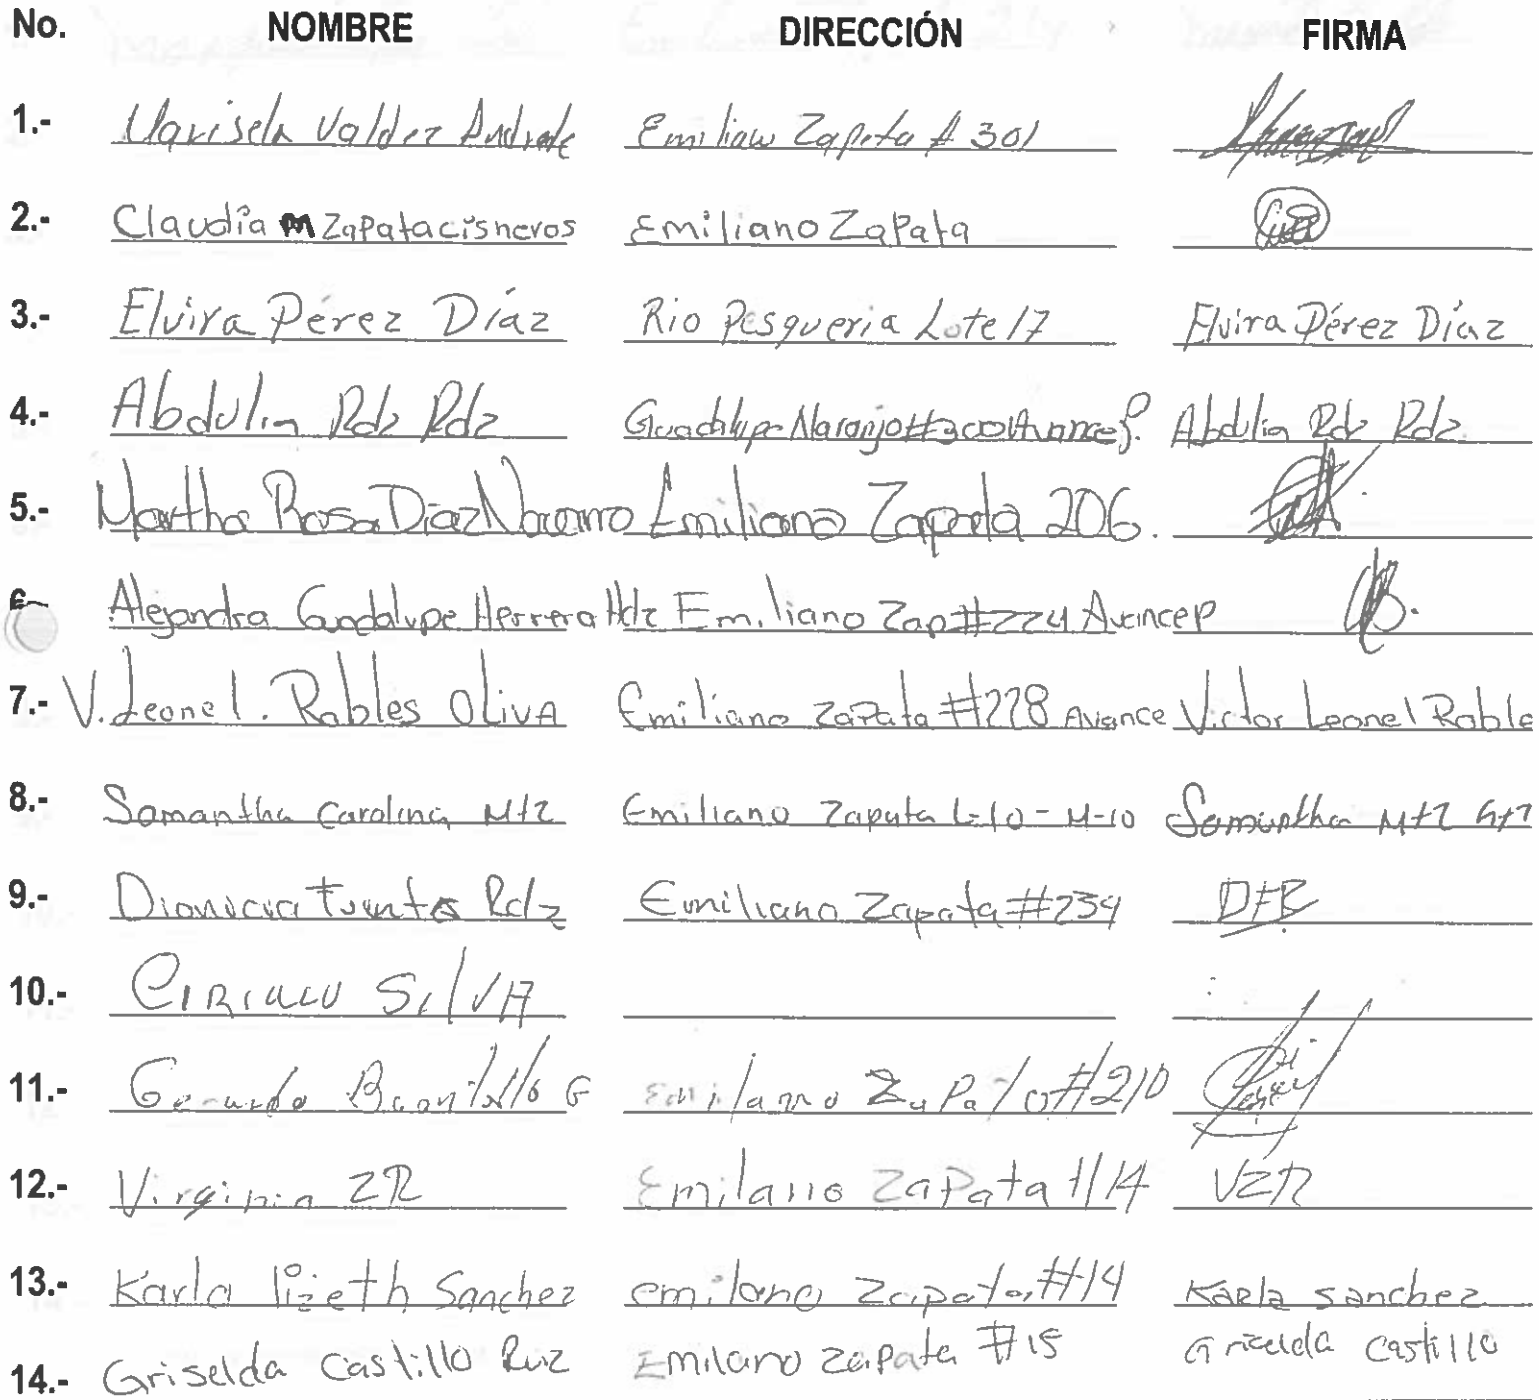 No. NOMBRE DIRECCIÓN FIRMA
1.- Marisela Valdez Andrade Emiliano Zapata # 301
2.- Claudia M Zapata cisneros Emiliano Zapata
3.- Elvira Pérez Díaz Rio Pesqueria Lote 17 Elvira Pérez Díaz
4.- Abdulia Rdz Rdz Guadalupe Naranjo Abdulia Rdz Rdz
5.- Martha Rosa Diaz Navarro Emiliano Zapata 206.
6.- Alejandra Guadalupe Herrera Hdz Emiliano Zap #224 Avance P
7.- V. Leonel. Robles OLivA Emiliano Zapata #228 Avance Victor Leonel Roble
8.- Samantha Carolina Mtz Emiliano Zapata L-10 - M-10 Samantha Mtz
9.- Dionicia Fuentes Rdz Emiliano Zapata #234 DFR
10.- CIRIACO SilVA
11.- Gerardo G Emilanno ZaPata #210
12.- Virginia ZR Emilano ZaPata #14 VZR
13.- Karla lizeth Sanchez emilano Zapata #14 Karla sanchez
14.- Griselda Castillo Ruiz Emilano Zapata #15 Griselda Castillo